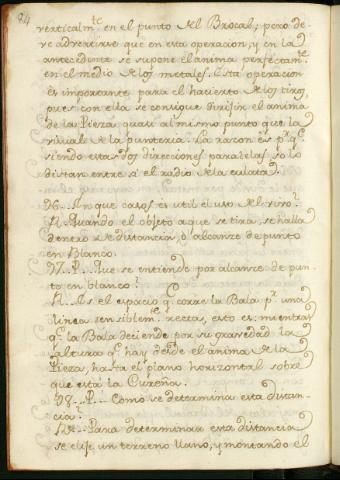 84
verticalm.te en el punto del Brocal; pero de-
ve advertirse que en esta operacion, y en la
antecedente se supone el anima perfectam.te
en el medio de los metales. Esta operacion
es importante para el hacierto de los tiros
pues con ella se consigue dirijir el anima
de la Pieza quasi al mismo punto que la
visual de la punteria. La razon es p.r q.e
siendo estas dos direcciones paralelas, solo
distan entre si el radio de la culata.
96... En que casos es util el uso del
R... Quando el objeto a que se tira, se halla
dentro de distancia, ò alcanze de punto
en Blanco.
97... P... Que se entiende por alcanze de pun-
to en blanco?
R... Es el espacio q.e corre la Bala p.r una
linea sensiblem.te recta, esto es: mientras
q.e la Bala deciende por su gravedad la
altura q.e hay desde el anima de la
Pieza, hasta el plano horizontal sobre
que està la Cureña.
98... P... Como se determina esta distan-
cia?
R... Para determinar esta distancia
se elije un terreno llano, y montando el